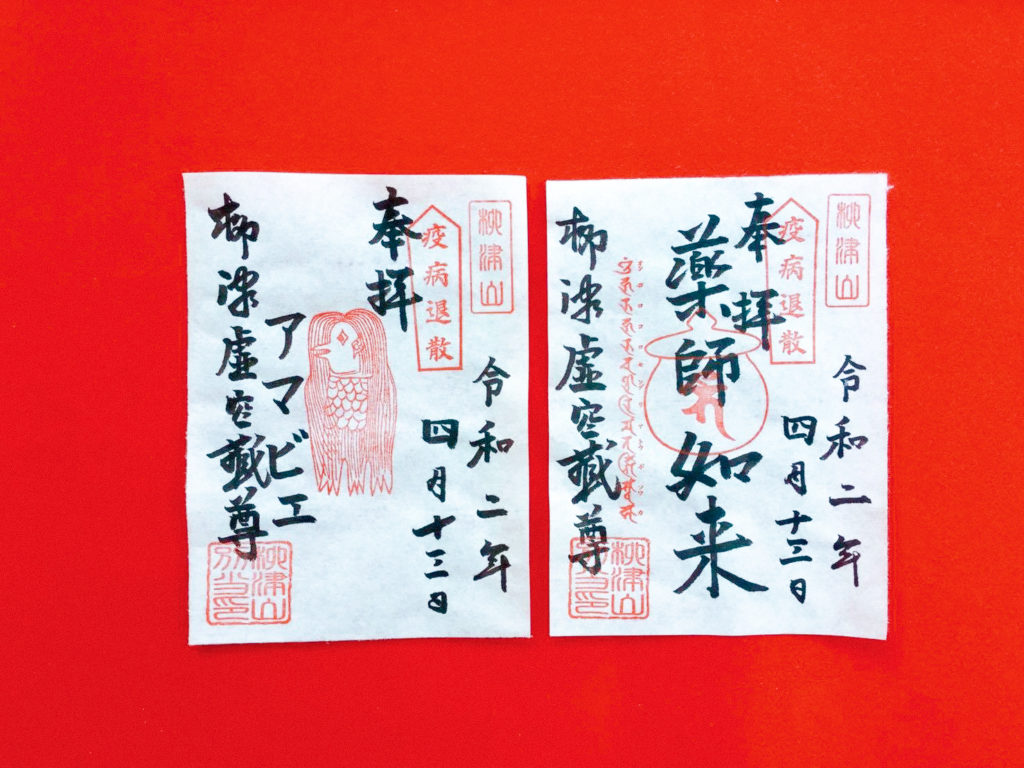 柳津山
疫病退散
奉拝
令和二年
四月十三日
アマビエ
柳津虚空蔵尊
柳津山
別当印
柳津山
疫病退散
奉拝
令和二年
四月十三日
薬師如来
柳津虚空蔵尊
柳津山
別当印